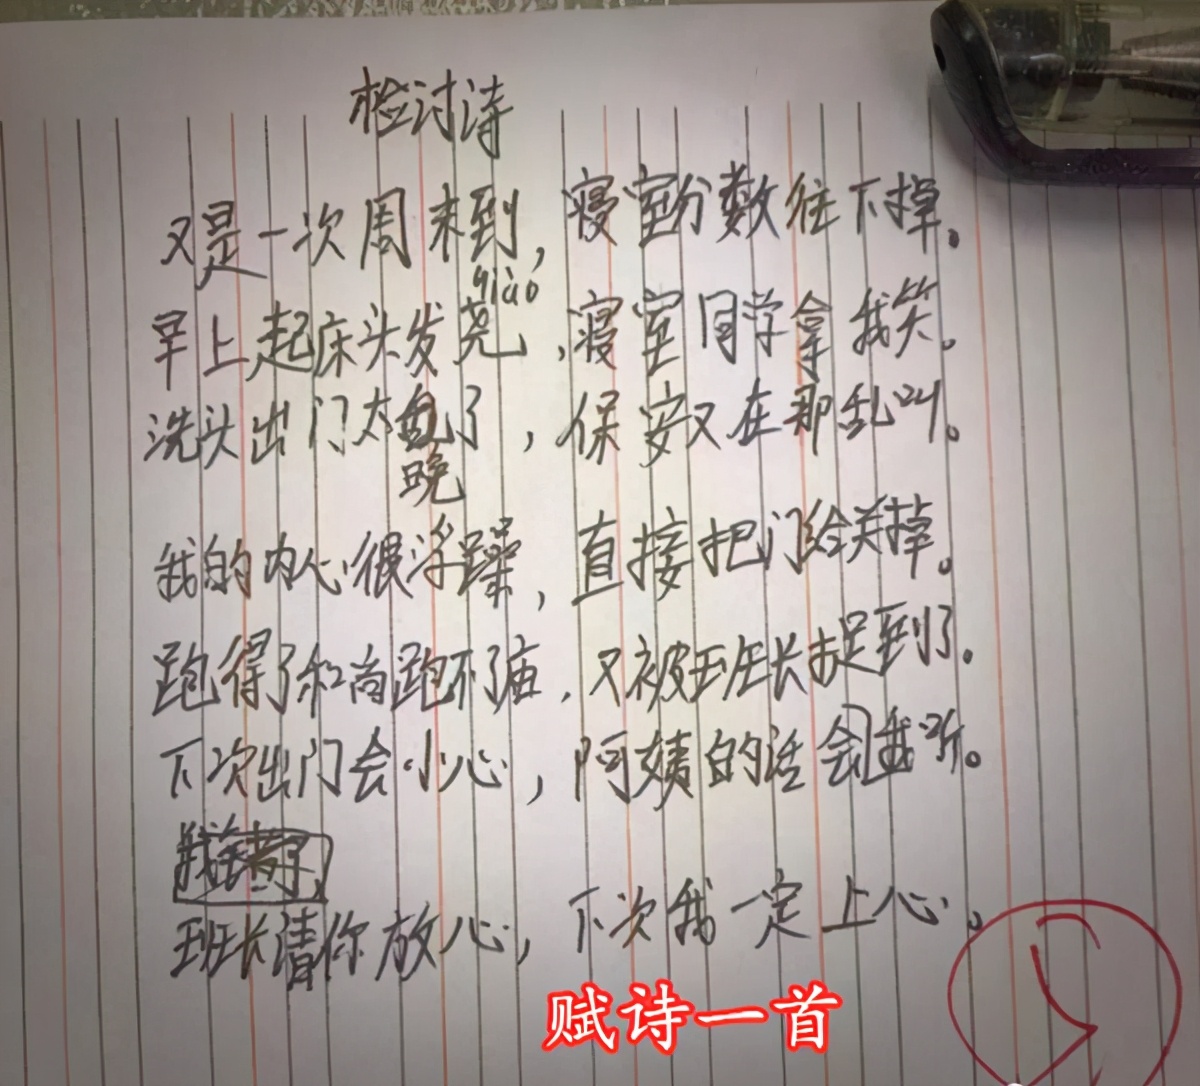 检讨诗
又是一次周末到，寝室分数往下掉。
qiào
早上起床头发尧，寝室同学拿我笑。
洗头出门太晚了，保安又在那乱叫。
我的内心很浮躁，直接把门给关掉。
跑得了和尚跑不了庙，又被班长捉到了。
下次出门会小心，阿姨的话会我听。
班长请你放心，下次我一定上心。
赋诗一首